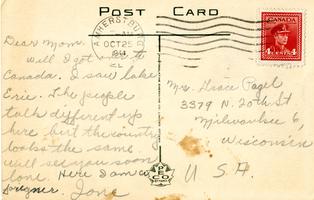 POST CARD
AMHERSTBURG
OCT 25
CANADA
4 4
Dear Mom.
Well I got over to
Canada. I saw lake
Erie. The people
talk different up
here but the country
looks the same.
will see you soon
love.
Here I am
Mrs. Grace Pagel
3379 N. 20th St
Milwaukee 6,
Wisconsin
U. S. A.
PECO